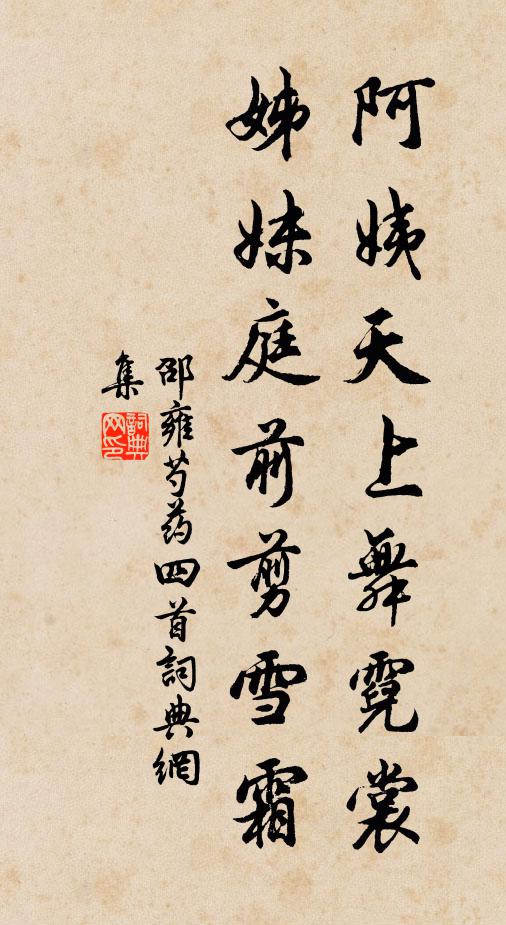 阿姨天上舞霓裳
姊妹庭前剪雪霜
邵雍芍药四首詞典網
集
詞典網印